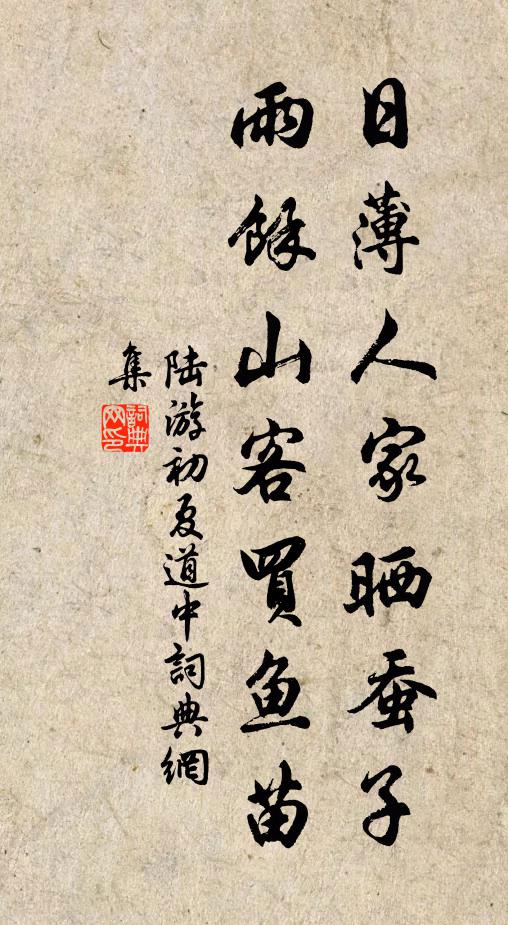 日薄人家晒蚕子
雨餘山客買鱼苗
陆游初夏道中詞典網
集
詞典
网印